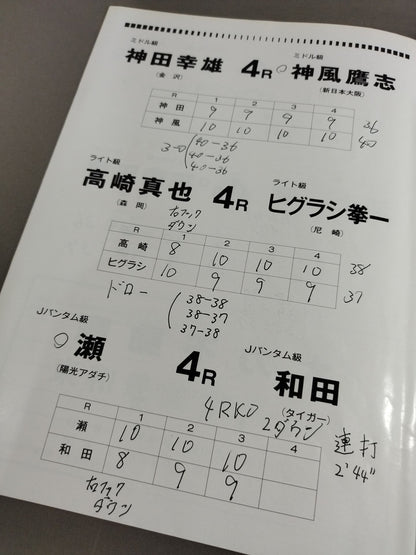 ミドル級 ミドル級
神田幸雄 4R ○神風鷹志
(金沢) (新日本大阪)
R 1 2 3 4
神田 9 9 9 9 36
神風 10 10 10 10 40
3-0 (40-36
40-36
40-36
ライト級 ライト級
高崎真也 4R ヒグラシ拳一
(森岡) (尼崎)
右フック
ダウン
R 1 2 3 4
高崎 8 10 10 10 38
ヒグラシ 10 9 9 9 37
ドロー (38-38
38-37
37-38
Jバンタム級 Jバンタム級
○瀬 4R 和田
(陽光アダチ) (タイガー)
4RKO 2ダウン 連打
2'44"
R 1 2 3 4
瀬 10 10 10
和田 8 9 9
右フック
ダウン